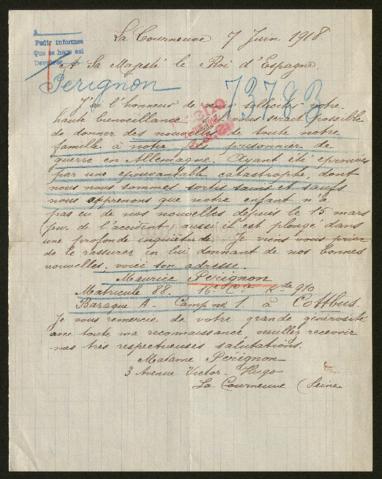 La Courneuve 7 Juin 1918
Pedir informes
Que se haga est
A Sa Majesté le Roi d'Espagne
Perignon 73783
J'ai l'honneur de solliciter votre
haute bienveillance serait possible
de donner des nouvelles de toute notre
famille à notre prisonnier de
guerre en Allemagne. Ayant été éprouvés
par une épouvantable catastrophe, dont
nous nous sommes sortis sains et saufs
nous apprenons que notre enfant n'a
pas eu de nos nouvelles depuis le 15 mars
jour de l'accident, aussi est plongé dans
une profonde inquiétude. Je viens vous prier
de le rassurer en lui donnant de nos bonnes
nouvelles, voici son adresse.
Maurice Perignon
Matricule 88. Cie 910
Baraque A. Camp No 1 à Cottbus
Je vous remercie de votre grande générosité
avec toute ma reconnaissance, veuillez recevoir
nos très respectueuses salutations.
Madame Perignon
3 Avenue Victor-Hugo
La Courneuve (Seine